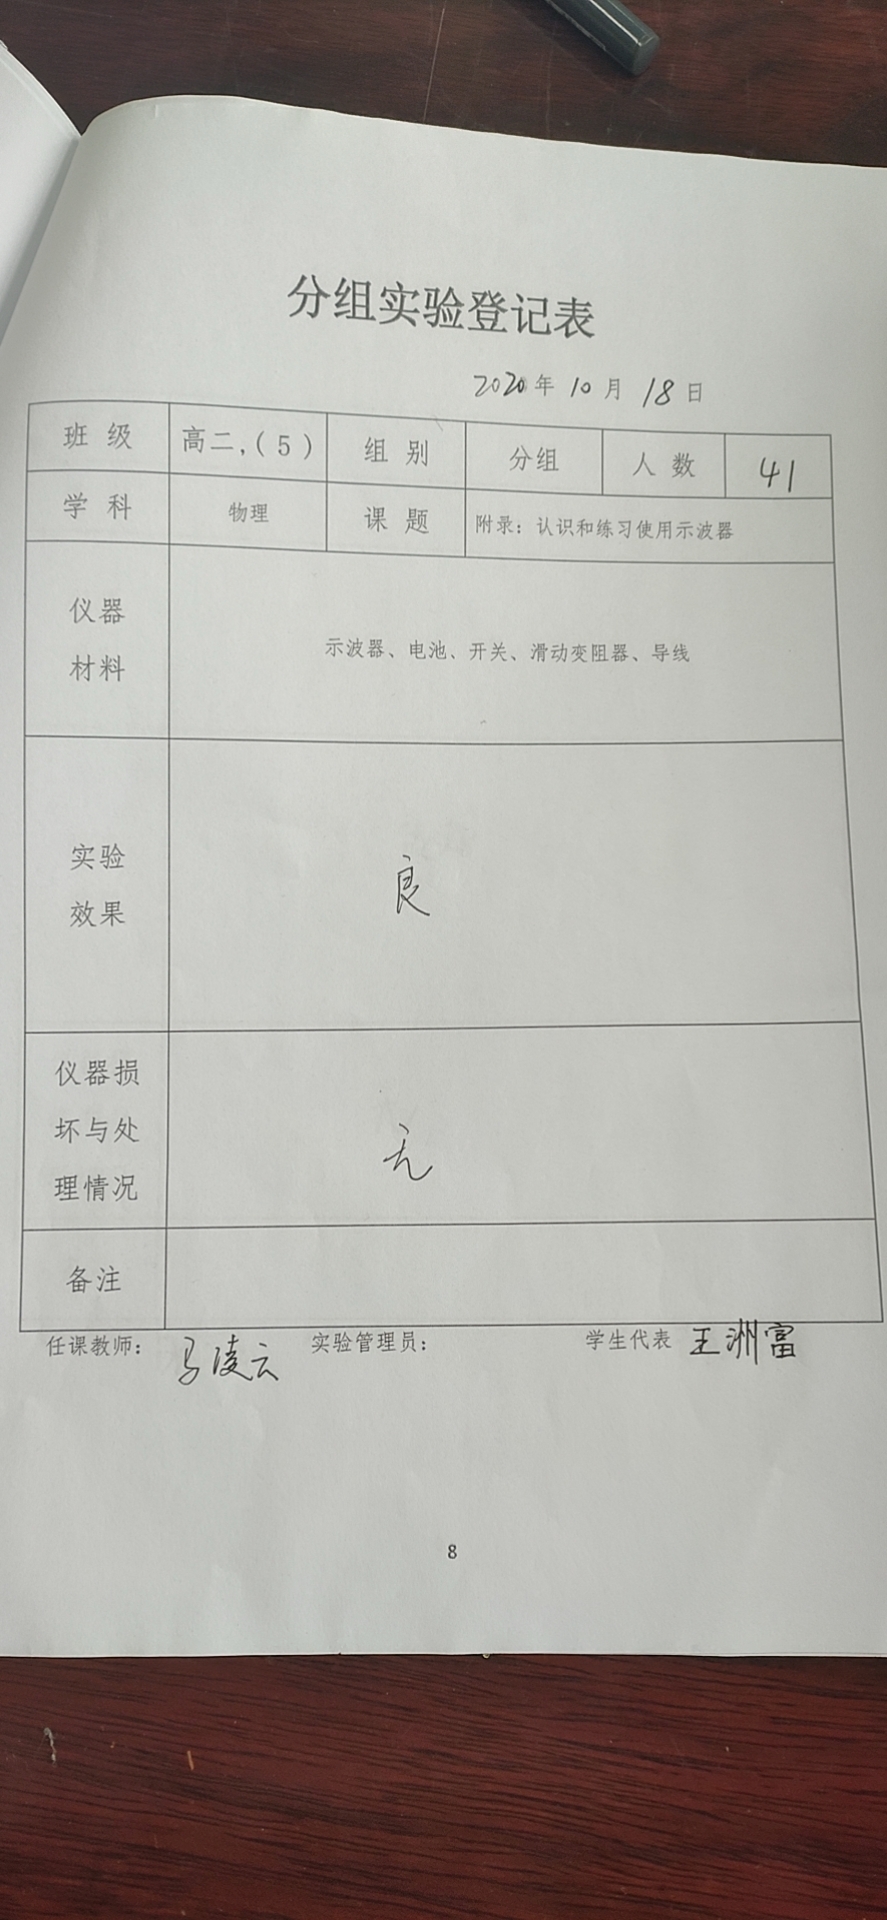 分组实验登记表
2020年 10月 18日
班 级 高二,(5) 组 别 分组 人 数 41
学 科 物理 课 题 附录:认识和练习使用示波器
仪器
材料
示波器、电池、开关、滑动变阻器、导线
实验
效果
良
仪器损
坏与处
理情况
无
备注
任课教师: 马凌云 实验管理员: 学生代表 王洲富
8